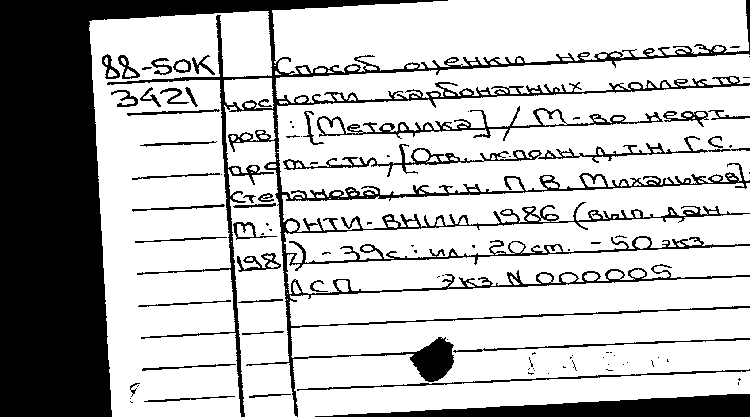 88-50К Способ оценки нефтегазо-
3421 носности карбонатных коллекто-
ров : [Методика] / М-во нефт.
пром-сти; [Отв. исполн. д.т.н. Г.С.
Степанова, к.т.н. П.В. Михальков].
М.: ОНТИ-ВНИИ, 1986 (вып. дан.
1987). - 39с. : ил.; 20см. - 50 экз
ДСП. Экз. N 000005